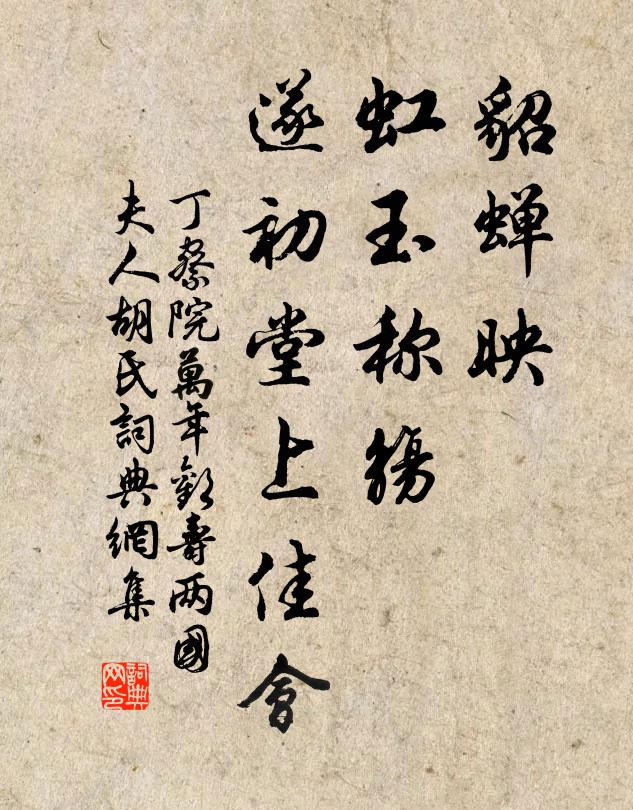 貂蟬映
虹玉称觴
遂初堂上佳會
丁察院萬年歡壽两國
夫人胡氏詞典網集
詞典
网印